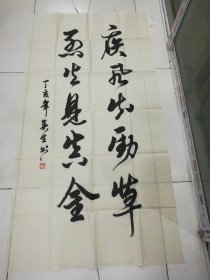 疾风知劲草
烈火见真金
丁亥年